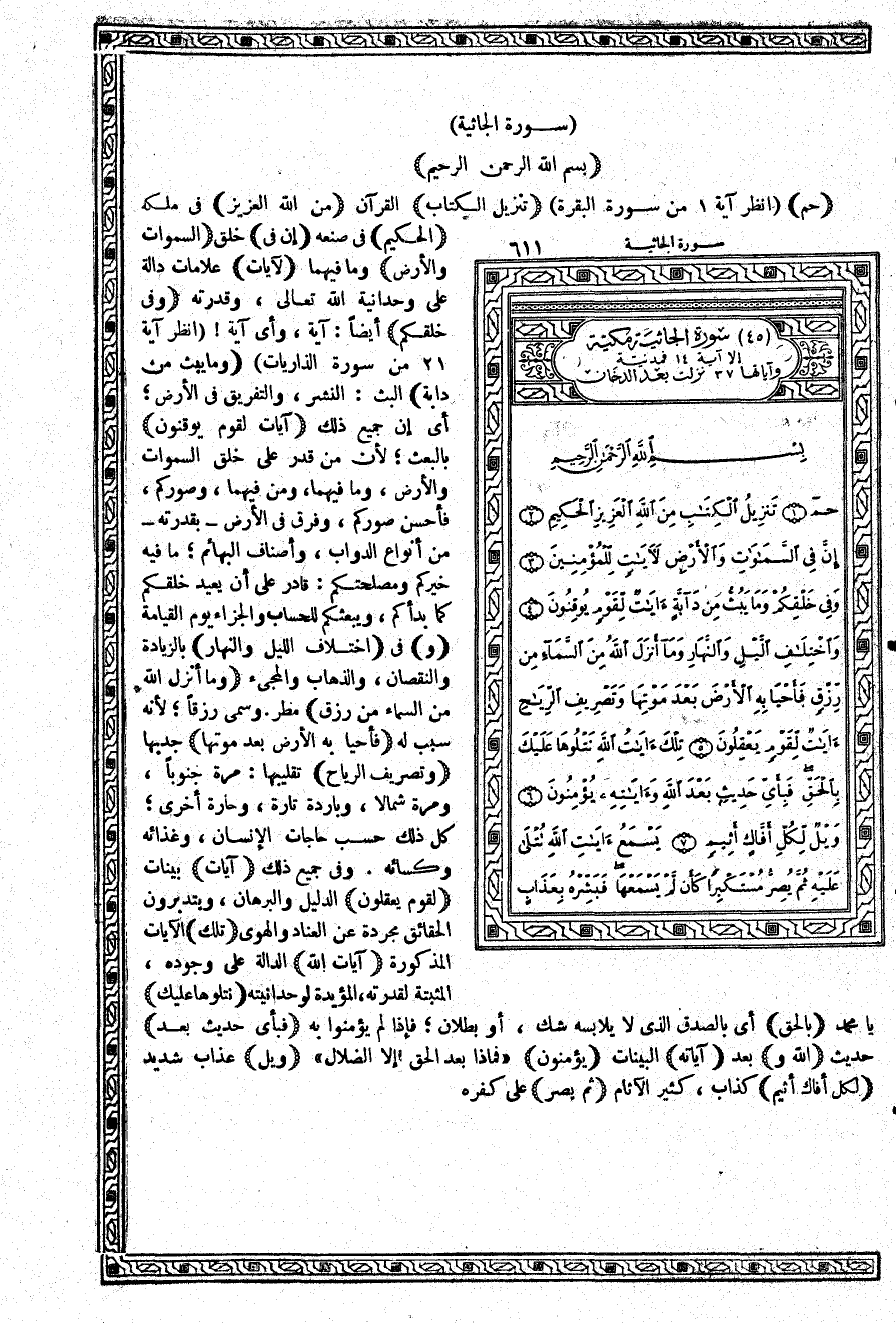 (ســورة الجاثية)
﴿بسم الله الرحمن الرحيم﴾
﴿حم﴾ (انظر آية ١ من سورة البقرة) ﴿تنزيل الكتاب﴾ القرآن ﴿من الله العزيز﴾ فى ملكه
﴿الحكيم﴾ فى صنعه ﴿إن فى﴾ خلق ﴿السموات
والأرض﴾ وما فيهما ﴿لآيات﴾ علامات دالة
على وحدانية الله تعالى ، وقدرته ﴿وفى
خلقكم﴾ أيضاً : آية ، وأى آية ! (انظر آية
٢١ من سورة الذاريات) ﴿وما يبث من
دابة﴾ البث : النشر ، والتفريق فى الأرض ؛
أى إن جميع ذلك ﴿آيات لقوم يوقنون﴾
بالبعث ؛ لأن من قدر على خلق السموات
والأرض ، وما فيهما، ومن فيهما ، وصوركم ،
فأحسن صوركم ، وفرق فى الأرض ــ بقدرته ــ
من أنواع الدواب ، وأصناف البهائم ؛ ما فيه
خيركم ومصلحتكم : قادر على أن يعيد خلقكم
كما بدأكم ، ويبعثكم للحساب والجزاء يوم القيامة
﴿و﴾ فى ﴿اختلاف الليل والنهار﴾ بالزيادة
والنقصان ، والذهاب والمجىء ﴿وما أنزل الله
من السماء من رزق﴾ مطر . وسمى رزقاً ؛ لأنه
سبب له ﴿فأحيا به الأرض بعد موتها﴾ جدبها
﴿وتصريف الرياح﴾ تقليبها : مرة جنوباً ،
ومرة شمالا ، وباردة تارة ، وحارة أخرى ؛
كل ذلك حسب حاجات الإنسان ، وغذائه
وكسائه . وفى جميع ذلك ﴿آيات﴾ بينات
﴿لقوم يعقلون﴾ الدليل والبرهان ، ويتدبرون
الحقائق مجردة عن العناد والهوى ﴿تلك﴾ الآيات
المذكورة ﴿آيات الله﴾ الدالة على وجوده ،
المثبتة لقدرته، المؤيدة لوحدانيته ﴿نتلوها عليك﴾
سورة الجاثية ٦١١
(٤٥) سورة الجاثية مكية
إلا آية ١٤ فمدنية
وآياتها ٣٧ نزلت بعد الدخان
بِسْمِ ٱللَّهِ ٱلرَّحْمَٰنِ ٱلرَّحِيمِ
حمٓ ١ تَنزِيلُ ٱلْكِتَٰبِ مِنَ ٱللَّهِ ٱلْعَزِيزِ ٱلْحَكِيمِ ٢
إِنَّ فِى ٱلسَّمَٰوَٰتِ وَٱلْأَرْضِ لَءَايَٰتٍ لِّلْمُؤْمِنِينَ ٣
وَفِى خَلْقِكُمْ وَمَا يَبُثُّ مِن دَآبَّةٍ ءَايَٰتٌ لِّقَوْمٍ يُوقِنُونَ ٤
وَٱخْتِلَٰفِ ٱلَّيْلِ وَٱلنَّهَارِ وَمَآ أَنزَلَ ٱللَّهُ مِنَ ٱلسَّمَآءِ مِن
رِّزْقٍ فَأَحْيَا بِهِ ٱلْأَرْضَ بَعْدَ مَوْتِهَا وَتَصْرِيفِ ٱلرِّيَٰحِ
ءَايَٰتٌ لِّقَوْمٍ يَعْقِلُونَ ٥ تِلْكَ ءَايَٰتُ ٱللَّهِ نَتْلُوهَا عَلَيْكَ
بِٱلْحَقِّ ۖ فَبِأَىِّ حَدِيثٍۭ بَعْدَ ٱللَّهِ وَءَايَٰتِهِۦ يُؤْمِنُونَ ٦
وَيْلٌ لِّكُلِّ أَفَّاكٍ أَثِيمٍ ٧ يَسْمَعُ ءَايَٰتِ ٱللَّهِ تُتْلَىٰ
عَلَيْهِ ثُمَّ يُصِرُّ مُسْتَكْبِرًا كَأَن لَّمْ يَسْمَعْهَا ۖ فَبَشِّرْهُ بِعَذَابٍ
يا محمد ﴿بالحق﴾ أى بالصدق الذى لا يلابسه شك ، أو بطلان ؛ فإذا لم يؤمنوا به ﴿فبأى حديث بعد﴾
حديث ﴿الله و﴾ بعد ﴿آياته﴾ البينات ﴿يؤمنون﴾ «فماذا بعد الحق إلا الضلال» ﴿ويل﴾ عذاب شديد
﴿لكل أفاك أثيم﴾ كذاب ، كثير الآثام ﴿ثم يصر﴾ على كفره